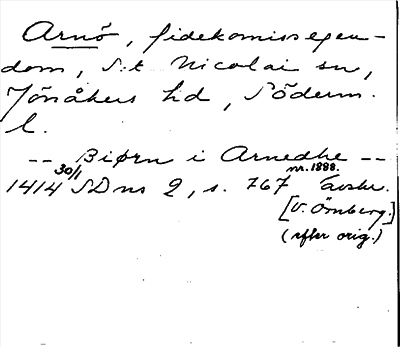 Arnö, fidekomissegen-
dom, S:t Nicolai sn,
Jönåkers hd, Söderm.
l.
-- Biørn i Arnedhe --
1414 30/1 SD ns 2, s. 767 nr. 1888. avskr.
[V. Örnberg.]
(efter orig.)